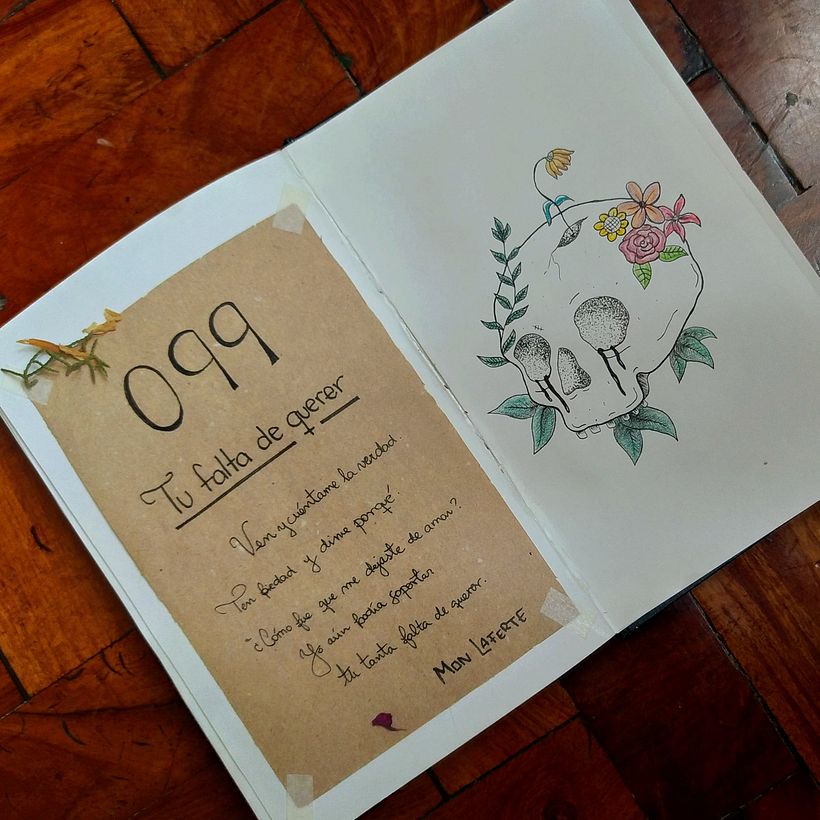 099
Tu falta de querer
Ven y cuéntame la verdad.
Ten piedad y dime porqué.
¿Cómo fue que me dejaste de amar?
Yo aún podía soportar
tu tanta falta de querer.
MON LAFERTE